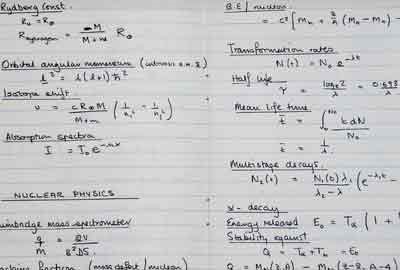 Rydberg Const.
R₀ = R∞
R_Hydrogen = M / M+m R∞
Orbital angular momentum
l² = l(l+1)ħ²
Isotope shift
ν = cR∞M / M+m (1/n₁² - 1/n₂²)
Absorption spectra
I = I₀e
NUCLEAR PHYSICS
mass spectrometer
q/m = 2V / B²DS
fraction (mass defect / nucleon)
B.E / nucleon
= c² [Mn + Z/A (MH - Mn) -
Transformation rates
N(t) = N₀ e^-λt
Half life
τ = loge2 / λ = 0.693
Mean life time
t̄ = ∫ t dN / N₀
t̄ = 1/λ
Multistage decays.
N₂(t) = N₁(0)λ₁ / λ₂ - λ₁ (e^-λ₁t -
α - decay
Energy released E₀ = Tα (1 +
Stability against
Q = Tα + Tb = E₀